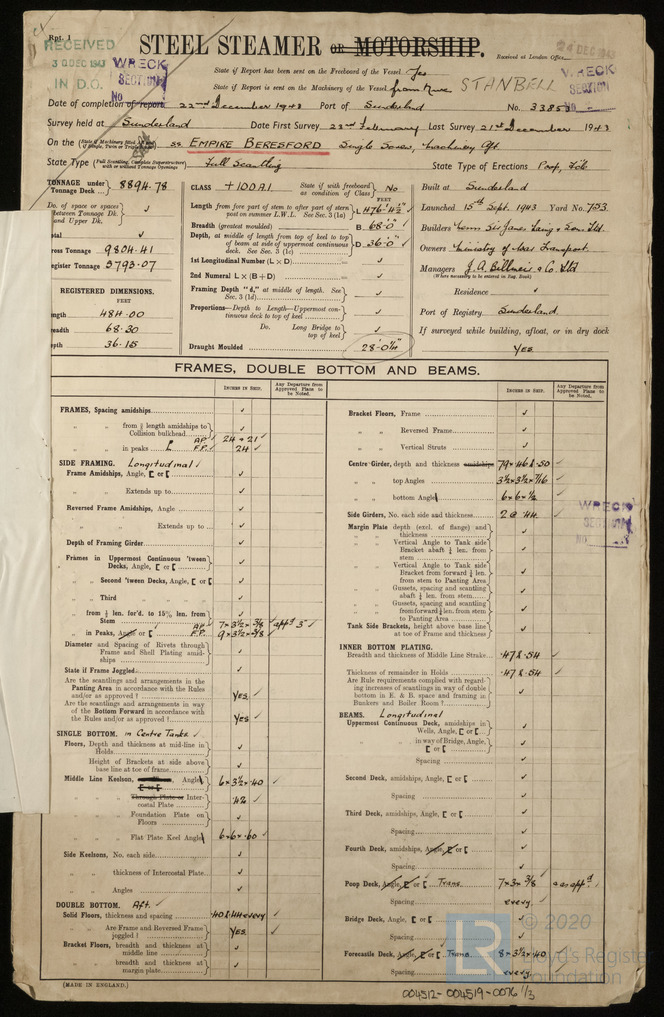 Rpt. 1
RECEIVED
3 DEC 1943
IN D.O.
WRECK
SECTION
No
STEEL STEAMER OR MOTORSHIP.
Received at London Office
24 DEC 1943
WRECK
SECTION
No
State if Report has been sent on the Freeboard of the Vessel Yes
State if Report is sent on the Machinery of the Vessel from
STANBELL
Date of completion of report 22nd December 1943 Port of Sunderland No. 33853
Survey held at Sunderland Date First Survey 23rd February Last Survey 21st December 1943
On the (State if Machinery fitted Aft and if Single, Twin or Triple Screw) ss. EMPIRE BERESFORD Single Screw, Machinery Aft.
State Type (Full Scantling, Complete Superstructure, with or without Tonnage Openings) Full Scantling State Type of Erections Poop, F'cle
TONNAGE under Tonnage Deck... 8894.78
Do. of space or spaces between Tonnage Dk. and Upper Dk.
Total
Gross Tonnage 9804.41
Register Tonnage 5793.07
REGISTERED DIMENSIONS.
FEET
Length 484.00
Breadth 68.30
Depth 36.15
CLASS +100A1 State if with freeboard as condition of Class No
FEET
Length from fore part of stem to after part of stern post on summer L.W.L. See Sec. 3 (1a) L 476'-4½"
Breadth (greatest moulded) B 68'-0"
Depth, at middle of length from top of keel to top of beam at side of uppermost continuous deck. See Sec. 3 (1c) D 36'-0"
1st Longitudinal Number (L × D)
2nd Numeral L × (B + D)
Framing Depth "d," at middle of length. See Sec. 3 (1d)
Proportions—Depth to Length—Uppermost continuous deck to top of keel
Do. Long Bridge to top of keel
Draught Moulded 28'-0¼"
Built at Sunderland
Launched 15th Sept. 1943 Yard No. 753
Builders Messrs Sir James Laing & Sons Ltd.
Owners Ministry of War Transport
Managers J. A. Billmeir & Co. Ltd
(Where necessary to be entered in Reg. Book)
Residence
Port of Registry Sunderland
If surveyed while building, afloat, or in dry dock
Yes
FRAMES, DOUBLE BOTTOM AND BEAMS.
INCHES IN SHIP.
Any Departure from Approved Plans to be Noted.
FRAMES, Spacing amidships
" " from ¾ length amidships to Collision bulkhead
" " in peaks A.P. 24 & 21 F.P. 24
SIDE FRAMING. Longitudinal
Frame Amidships, Angle, [ or [
" " Extends up to
Reversed Frame Amidships, Angle
" " Extends up to
Depth of Framing Girder
Frames in Uppermost Continuous 'tween Decks, Angle, [ or [
" " Second 'tween Decks, Angle, [ or [
" " Third
" " from ¾ len. for'd. to 15% len. from Stem
" " in Peaks, Angle or [ A.P. 7 × 3½ × 3/8 F.P. 9 × 3½ × 3/8 app'd
Diameter and Spacing of Rivets through Frame and Shell Plating amidships
State if Frame Joggled
Are the scantlings and arrangements in the Panting Area in accordance with the Rules and/or as approved? Yes
Are the scantlings and arrangements in way of the Bottom Forward in accordance with the Rules and/or as approved? Yes
SINGLE BOTTOM. in Centre Tanks
Floors, Depth and thickness at mid-line in Holds
Height of Brackets at side above base line at toe of frame
Middle Line Keelson, Angle 6 × 3½ × .40
" " Through Plate or Intercostal Plate .42
" " Foundation Plate on Floors
" " Flat Plate Keel Angle 6 × 6 × .60
Side Keelsons, No. each side
" " thickness of Intercostal Plate
" " Angles
DOUBLE BOTTOM. Aft.
Solid Floors, thickness and spacing .40 & .44 every
" " Are Frame and Reversed Frame joggled? Yes.
Bracket Floors, breadth and thickness at middle line
" " breadth and thickness at margin plate
(MADE IN ENGLAND.)
INCHES IN SHIP.
Any Departure from Approved Plans to be Noted.
Bracket Floors, Frame
" " Reversed Frame
" " Vertical Struts
Centre Girder, depth and thickness amidships 79 × .46 & .50
" " top Angles 3½ × 3½ × 7/16
" " bottom Angle 6 × 6 × ½
Side Girders, No. each side and thickness 2 @ .44
Margin Plate depth (excl. of flange) and thickness
" " Vertical Angle to Tank side Bracket abaft ¼ len. from stem
" " Vertical Angle to Tank side Bracket from forward ¼ len. from stem to Panting Area
" " Gussets, spacing and scantling abaft ¼ len. from stem
" " Gussets, spacing and scantling from forward ¼ len. from stem to Panting Area
Tank Side Brackets, height above base line at toe of Frame and thickness
WRECK
SECTION
No
INNER BOTTOM PLATING.
Breadth and thickness of Middle Line Strake .47 & .54
Thickness of remainder in Holds .47 & .54
Are Rule requirements complied with regarding increases of scantlings in way of double bottom in E. & B. space and framing in Bunkers and Boiler Room?
BEAMS. Longitudinal
Uppermost Continuous Deck, amidships in Wells, Angle, [ or [
" " in way of Bridge, Angle, [ or [
Spacing
Second Deck, amidships, Angle, [ or [
Spacing
Third Deck, amidships, Angle, [ or [
Spacing
Fourth Deck, amidships, Angle, [ or [
Spacing
Poop Deck, Angle, [ or [ Trans. 7 × 3 × 3/8 as app'd
Spacing every
Bridge Deck, Angle, [ or [
Spacing
Forecastle Deck, Angle, [ or [ Trans. 8 × 3½ × .40
Spacing every
LR
© 2020
Lloyd's Register
Foundation
004512-004519-0076 1/3